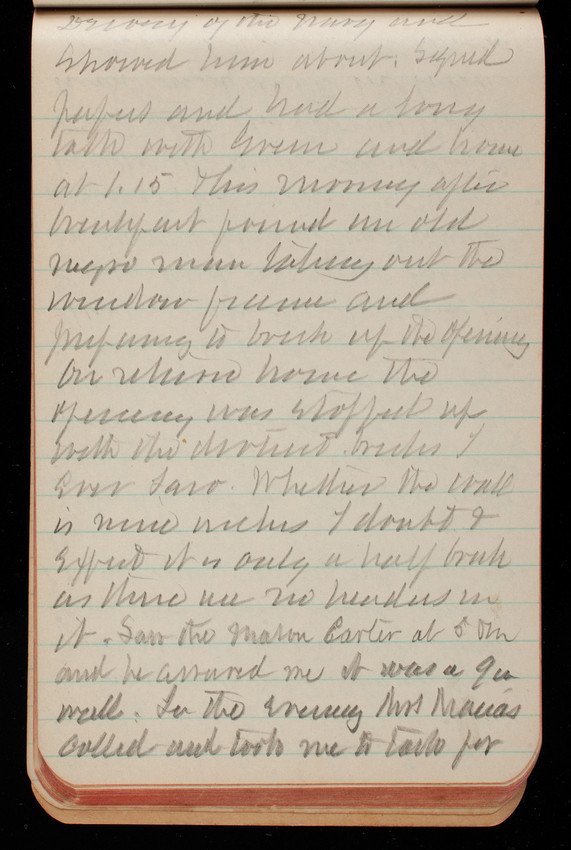 of the Navy and
Showed him about. Signed
papers and had a long
talk with Green and home
at 1.15 This morning after
breakfast found an old
negro man taking out the
window frame and
preparing to brick up the opening
On return home the
opening was stopped up
with the dirtiest bricks I
Ever Saw. Whether the wall
is nine inches I doubt &
Expect it is only a half brick
as there are no headers in
it. Saw the Mason Carter at 5 Pm
and he assured me it was a 9in
wall. In the Evening Mrs
called and took me to task for